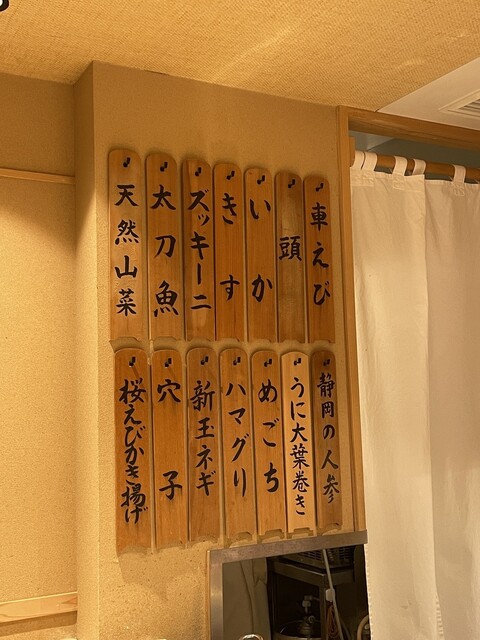 車えび
頭
いか
きす
ズッキーニ
太刀魚
天然山菜
静岡の人参
うに大葉巻き
めごち
ハマグリ
新玉ネギ
穴子
桜えびかき揚げ